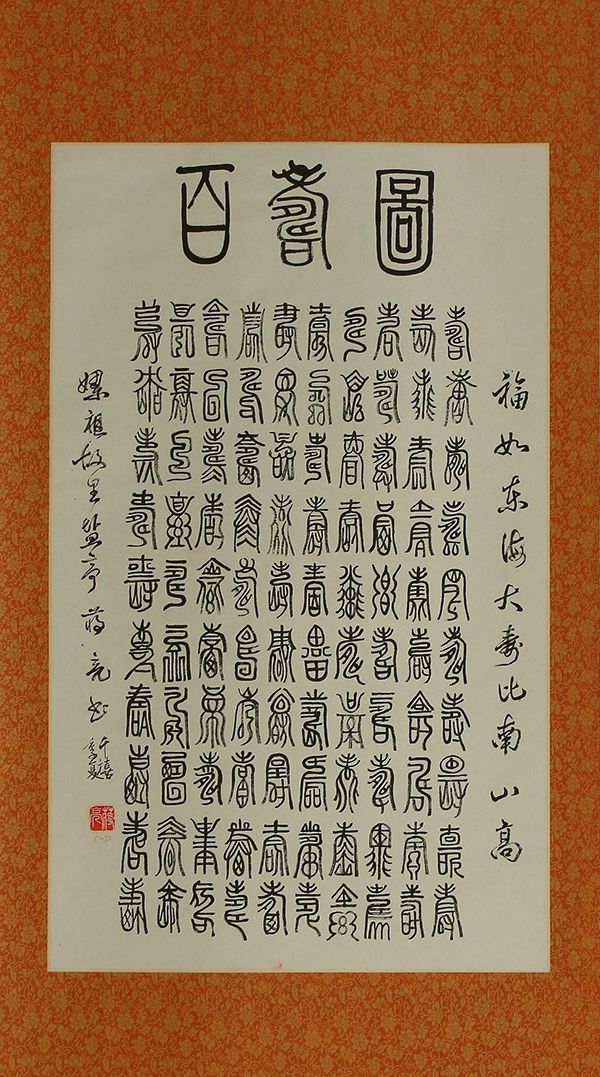 百壽圖
福如东海大寿比南山高
壽壽壽壽壽壽壽壽壽壽
壽壽壽壽壽壽壽壽壽壽
壽壽壽壽壽壽壽壽壽壽
壽壽壽壽壽壽壽壽壽壽
壽壽壽壽壽壽壽壽壽壽
壽壽壽壽壽壽壽壽壽壽
壽壽壽壽壽壽壽壽壽壽
壽壽壽壽壽壽壽壽壽壽
壽壽壽壽壽壽壽壽壽壽
壽壽壽壽壽壽壽壽壽壽
嫘祖故里盐亭蒋亮书
千禧季夏